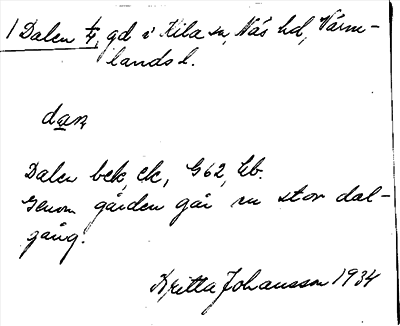 1 Dalen 1/4, gd i Kila sn, Näs hd, Värm-
lands l.
dan
Dalen bek, ek, G62, Eb.
Genom gården går en stor dal-
gång.
Kritta Johansson 1934